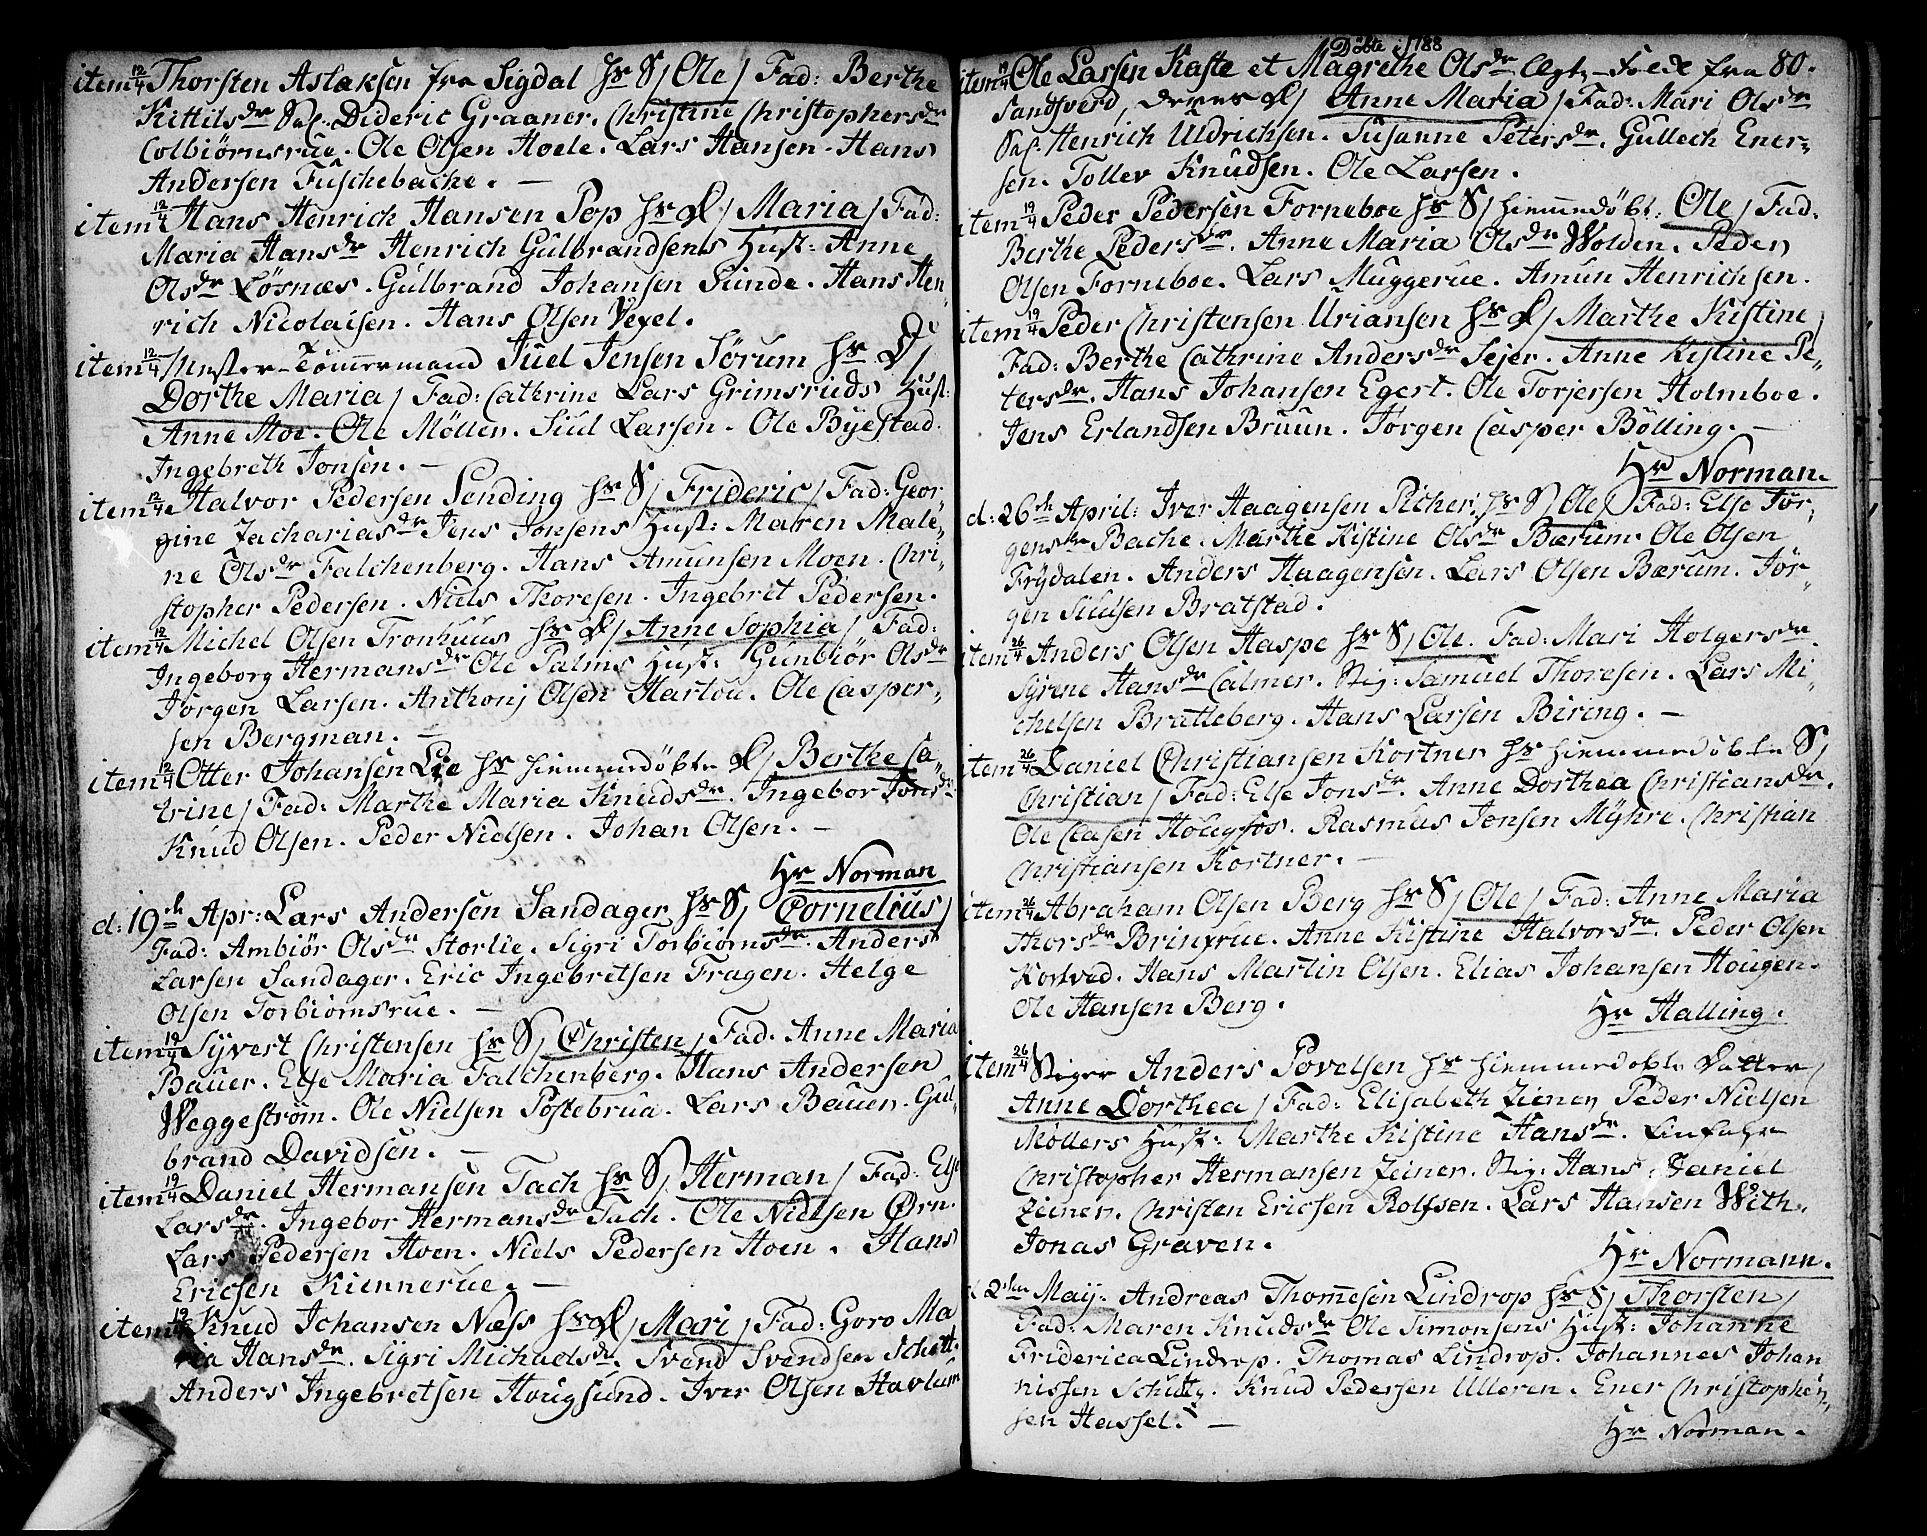 item 12/4 Thorsten Aslaksen fra Sigdal hs S/ Ole / Fad: Berthe
Kittilsdr Sal. Dideric Graaner. Christine Christophersdr
Colbiørnsrue. Ole Olsen Hoele. Lars Hansen. Hans
Andersen Fuschebache. —
item 12/4 Hans Henrich Hansen Pop hs D/ Maria / Fad:
Maria Hansdr Henrich Gulbrandsens Hust: Anne
Olsdr Løsnæs. Gulbrand Johansen Sunde. Hans Hen-
rich Nicolaisen. Hans Olsen Vexel.
item 12/4 Tömmermand Juel Jensen Sørum hs D/
Dorthe Maria / Fad: Cathrine Lars Grimsruds Hust:
Anne Moe. Ole Möller. Siul Larsen. Ole Byestad.
Ingebreth Jonsen. —
item 12/4 Halvor Pedersen Sending hs S/ Frideric / Fad: Geor-
gine Zachariasdr Jens Jonsens Hust: Maren Male-
ne Olsdr Falchenberg. Hans Amunsen Moen. Chri-
stopher Pedersen. Niels Thoresen. Ingebret Pedersen.
item 12/4 Michel Olsen Tronhuus hs D/ Anne Sophia / Fad:
Ingeborg Hermansdr Ole Palms Hust: Gunbiör Olsdr
Jörgen Larsen. Anthonj Olsen Hartou. Ole Casper-
sen Bergman. —
item 12/4 Otter Johansen Lie hs hiemmedöbte D/ Berthe Ca-
trine / Fad: Marthe Maria Knudsdr. Ingebor Jonsdr
Knud Olsen. Peder Nielsen. Johan Olsen. —
Hr Norman
d: 19de Apr: Lars Andersen Sandager hs S/ Cornelius /
Fad: Ambiör Olsdr Storlie. Sigri Torbiørnsdr. Anders
Larsen Sandager. Eric Ingebretsen Fragen. Helge
Olsen Torbiørnsrue. —
item 19/4 Syvert Christensen hs S/ Christen / Fad: Anne Maria
Bauer. Else Maria Falchenberg. Hans Andersen
Weggestrøm. Ole Nielsen Postebrua. Lars Bauer. Gul-
brand Davidsen. —
item 19/4 Daniel Hermansen Tach hs S/ Herman / Fad: Else
Larsdr. Ingebor Hermansdr Tach. Ole Nielsen Ørn.
Lars Pedersen Hoen. Niels Pedersen Hoen. Hans
Ericsen Kiennerue. —
item 19/4 Knud Johansen Næss hs D/ Mari / Fad: Goro Ma
ria Hansdr. Sigri Michaelsdr. Svend Svendsen
Anders Ingebretsen Hougsund. Iver Olsen Havlum
Döbte 1788
80.
item 19/4 Ole Larsen Kaste et Magrethe Olsdr Ægte-Folck fra
Sandsverd, deres D/ Anne Maria / Fad: Mari Olsdr
Sal. Henrich Uldrichsen. Susanne Petersdr. Gullech Ener-
sen. Tollev Knudsen. Ole Larsen.
item 19/4 Peder Pedersen Forneboe hs S/ hiemmedöbt: Ole / Fad:
Berthe Pedersdr. Anne Maria Olsdr Wolden. Peder
Olsen Forneboe. Lars Muggerue. Amun Henrichsen.
item 19/4 Peder Christensen Uriansen hs D/ Marthe Kistine /
Fad: Berthe Cathrine Andersdr Sejer. Anne Kistine Pe-
tersdr. Hans Johansen Egert. Ole Torjersen Holmboe.
Jens Erlandsen Bruun. Jørgen Casper Bölling. —
Hr Norman.
d: 26de April: Iver Haagensen Picher hs S/ Ole / Fad: Else Jør-
gensdr Bache. Marthe Kistine Olsdr Bærum. Ole Olsen
Frydalen. Anders Haagensen. Lars Olsen Bærum. Jør-
gen Siulsen Bratstad.
item 26/4 Anders Olsen Haspe hs S/ Ole. Fad: Mari Holgersdr
Syrene Hansdr Calmer. Stig: Samuel Thoresen. Lars Mi-
chelsen Bratteberg. Hans Larsen Biring. —
item 26/4 Daniel Christiansen Kortner hs hiemmedöbte S/
Christian / Fad: Else Jonsdr. Anne Dorthea Christiansdr.
Ole Clasen Hougfos. Rasmus Jonsen Myhre. Christian
Christiansen Kortner. —
item 26/4 Abraham Olsen Berg hs S/ Ole / Fad: Anne Maria
Thorsdr Brinxrue. Anne Kistine Halvorsdr. Peder Olsen
Kortvad. Hans Martin Olsen. Elias Johansen Hougen.
Ole Hansen Berg.
Hr Halling.
item 26/4 Stiger Anders Povelsen hs hiemmedøbte Datter /
Anne Dorthea / Fad: Elisabeth Ziener Peder Nielsen
Møllers Hust: Marthe Kistine Hansdr.
Christopher Hermansen Zeiner. Stig: Hans Daniel
Zeiner. Christen Ericsen Rolfsen. Lars Hansen With.
Jonas Graven.
Hr Normann.
2den Maij: Andreas Thomesen Lindrop hs S/ Thorsten /
Fad: Maren Knudsdr Ole Simonsens Hust: Johanne
Friderica Lindrop. Thomas Lindrop. Johannes Johan
nissen Schütz. Knud Pedersen Ulleren. Ener Christophen-
sen Hassel. —
Hr Norman.